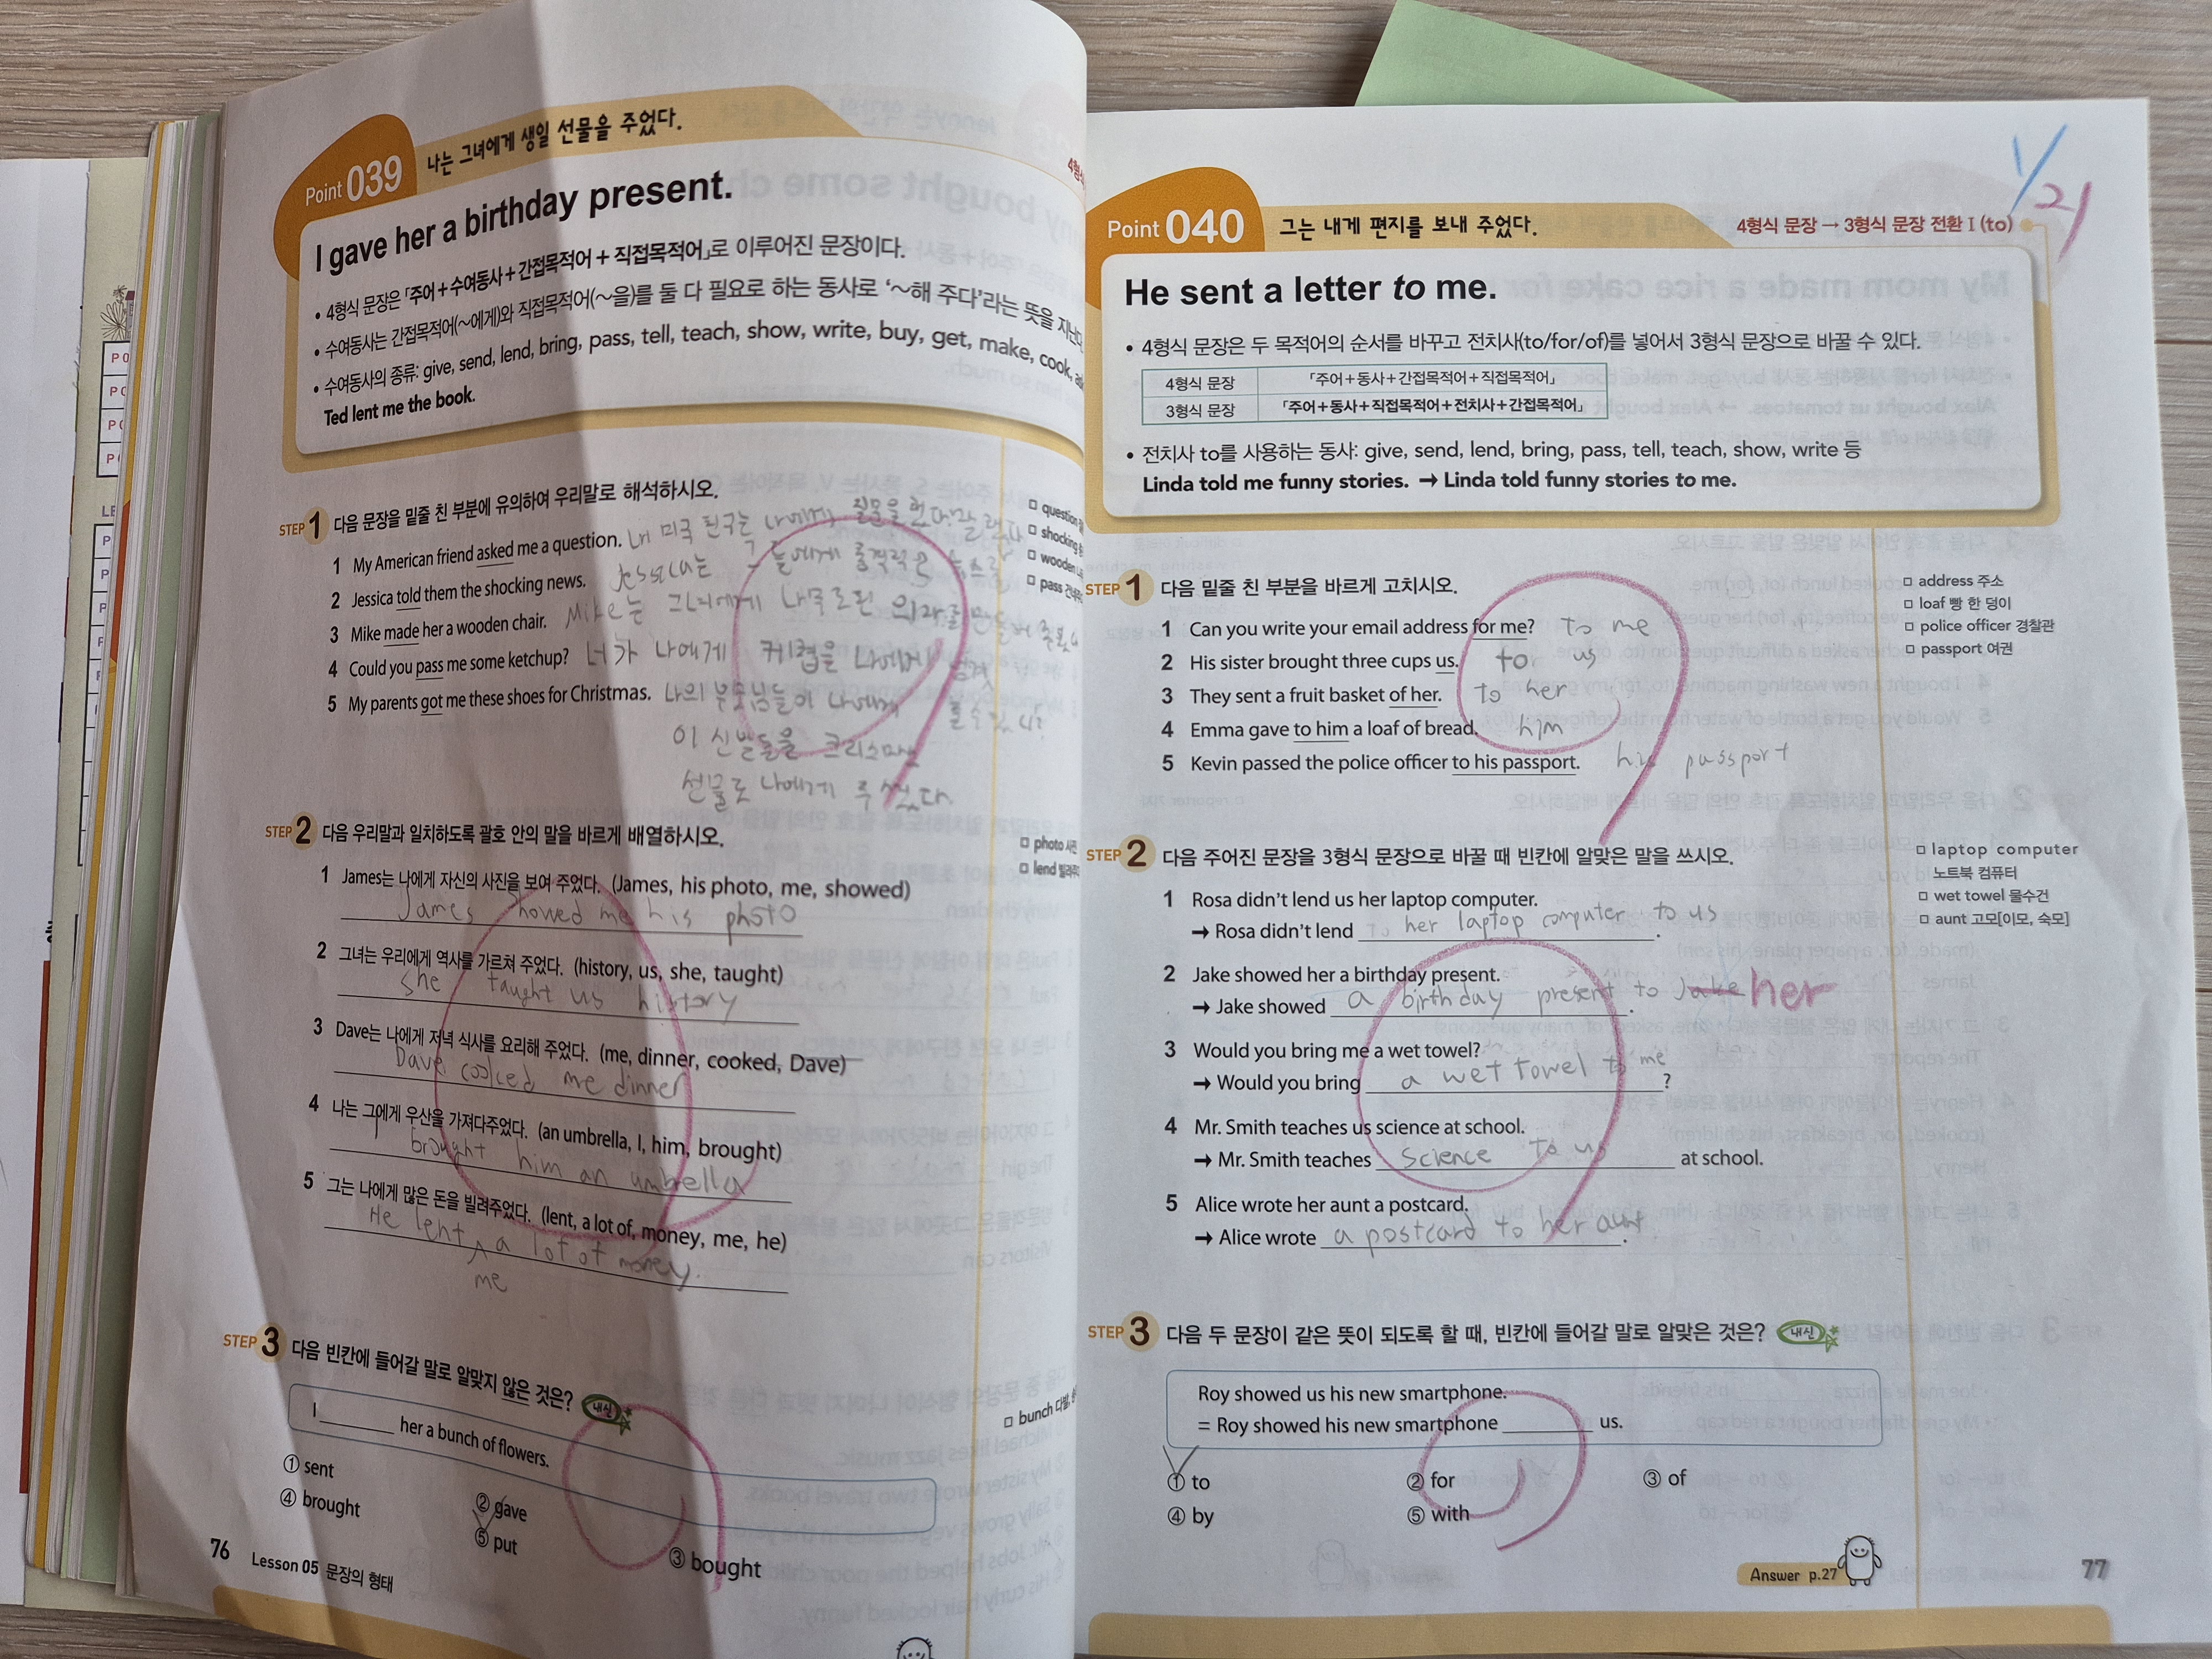 Point 039 나는 그녀에게 생일 선물을 주었다.
I gave her a birthday present.
• 4형식 문장은 「주어+수여동사+간접목적어+직접목적어」로 이루어진 문장이다.
• 수여동사는 간접목적어(~에게)와 직접목적어(~을)를 둘 다 필요로 하는 동사로 '~해 주다'라는 뜻을
• 수여동사의 종류: give, send, lend, bring, pass, tell, teach, show, write, buy, get, make, cook,
Ted lent me the book.
STEP 1 다음 문장을 밑줄 친 부분에 유의하여 우리말로 해석하시오.
1 My American friend asked me a question. 내 미국 친구는 나에게 질문을
2 Jessica told them the shocking news. Jessica는 그들에게 충격적은
3 Mike made her a wooden chair. Mike는 그녀에게 나무로된 의자를 만들어
4 Could you pass me some ketchup? 너가 나에게 케첩을 나에게
줄수있니?
5 My parents got me these shoes for Christmas. 나의 부모님들이 나에게
이 신발들을 크리스마스
선물로 나에게 주셨다.
question
shocking
wooden
pass
STEP 2 다음 우리말과 일치하도록 괄호 안의 말을 바르게 배열하시오.
photo 사진
lend
1 James는 나에게 자신의 사진을 보여 주었다. (James, his photo, me, showed)
James showed me his photo
2 그녀는 우리에게 역사를 가르쳐 주었다. (history, us, she, taught)
she taught us history
3 Dave는 나에게 저녁 식사를 요리해 주었다. (me, dinner, cooked, Dave)
Dave cooked me dinner
4 나는 그에게 우산을 가져다주었다. (an umbrella, I, him, brought)
I brought him an umbrella
5 그는 나에게 많은 돈을 빌려주었다. (lent, a lot of, money, me, he)
He lent a lot of money.
me
STEP 3 다음 빈칸에 들어갈 말로 알맞지 않은 것은? 내신
I ______ her a bunch of flowers.
bunch 다발,
① sent
② gave
③ bought
④ brought
⑤ put
76 Lesson 05 문장의 형태
1/21
Point 040 그는 내게 편지를 보내 주었다.
4형식 문장 → 3형식 문장 전환 I (to)
He sent a letter to me.
• 4형식 문장은 두 목적어의 순서를 바꾸고 전치사(to/for/of)를 넣어서 3형식 문장으로 바꿀 수 있다.
4형식 문장 「주어+동사+간접목적어+직접목적어」
3형식 문장 「주어+동사+직접목적어+전치사+간접목적어」
• 전치사 to를 사용하는 동사: give, send, lend, bring, pass, tell, teach, show, write 등
Linda told me funny stories. → Linda told funny stories to me.
STEP 1 다음 밑줄 친 부분을 바르게 고치시오.
1 Can you write your email address for me? to me
2 His sister brought three cups us. to us
3 They sent a fruit basket of her. to her
4 Emma gave to him a loaf of bread. him
5 Kevin passed the police officer to his passport. his passport
address 주소
loaf 빵 한 덩이
police officer 경찰관
passport 여권
STEP 2 다음 주어진 문장을 3형식 문장으로 바꿀 때 빈칸에 알맞은 말을 쓰시오.
1 Rosa didn't lend us her laptop computer.
→ Rosa didn't lend her laptop computer to us.
2 Jake showed her a birthday present.
→ Jake showed a birthday present to Jake her.
3 Would you bring me a wet towel?
→ Would you bring a wet towel to me?
4 Mr. Smith teaches us science at school.
→ Mr. Smith teaches science to us at school.
5 Alice wrote her aunt a postcard.
→ Alice wrote a postcard to her aunt.
laptop computer
노트북 컴퓨터
wet towel 물수건
aunt 고모[이모, 숙모]
STEP 3 다음 두 문장이 같은 뜻이 되도록 할 때, 빈칸에 들어갈 말로 알맞은 것은? 내신
Roy showed us his new smartphone.
= Roy showed his new smartphone ______ us.
① to
② for
③ of
④ by
⑤ with
Answer p.27
77